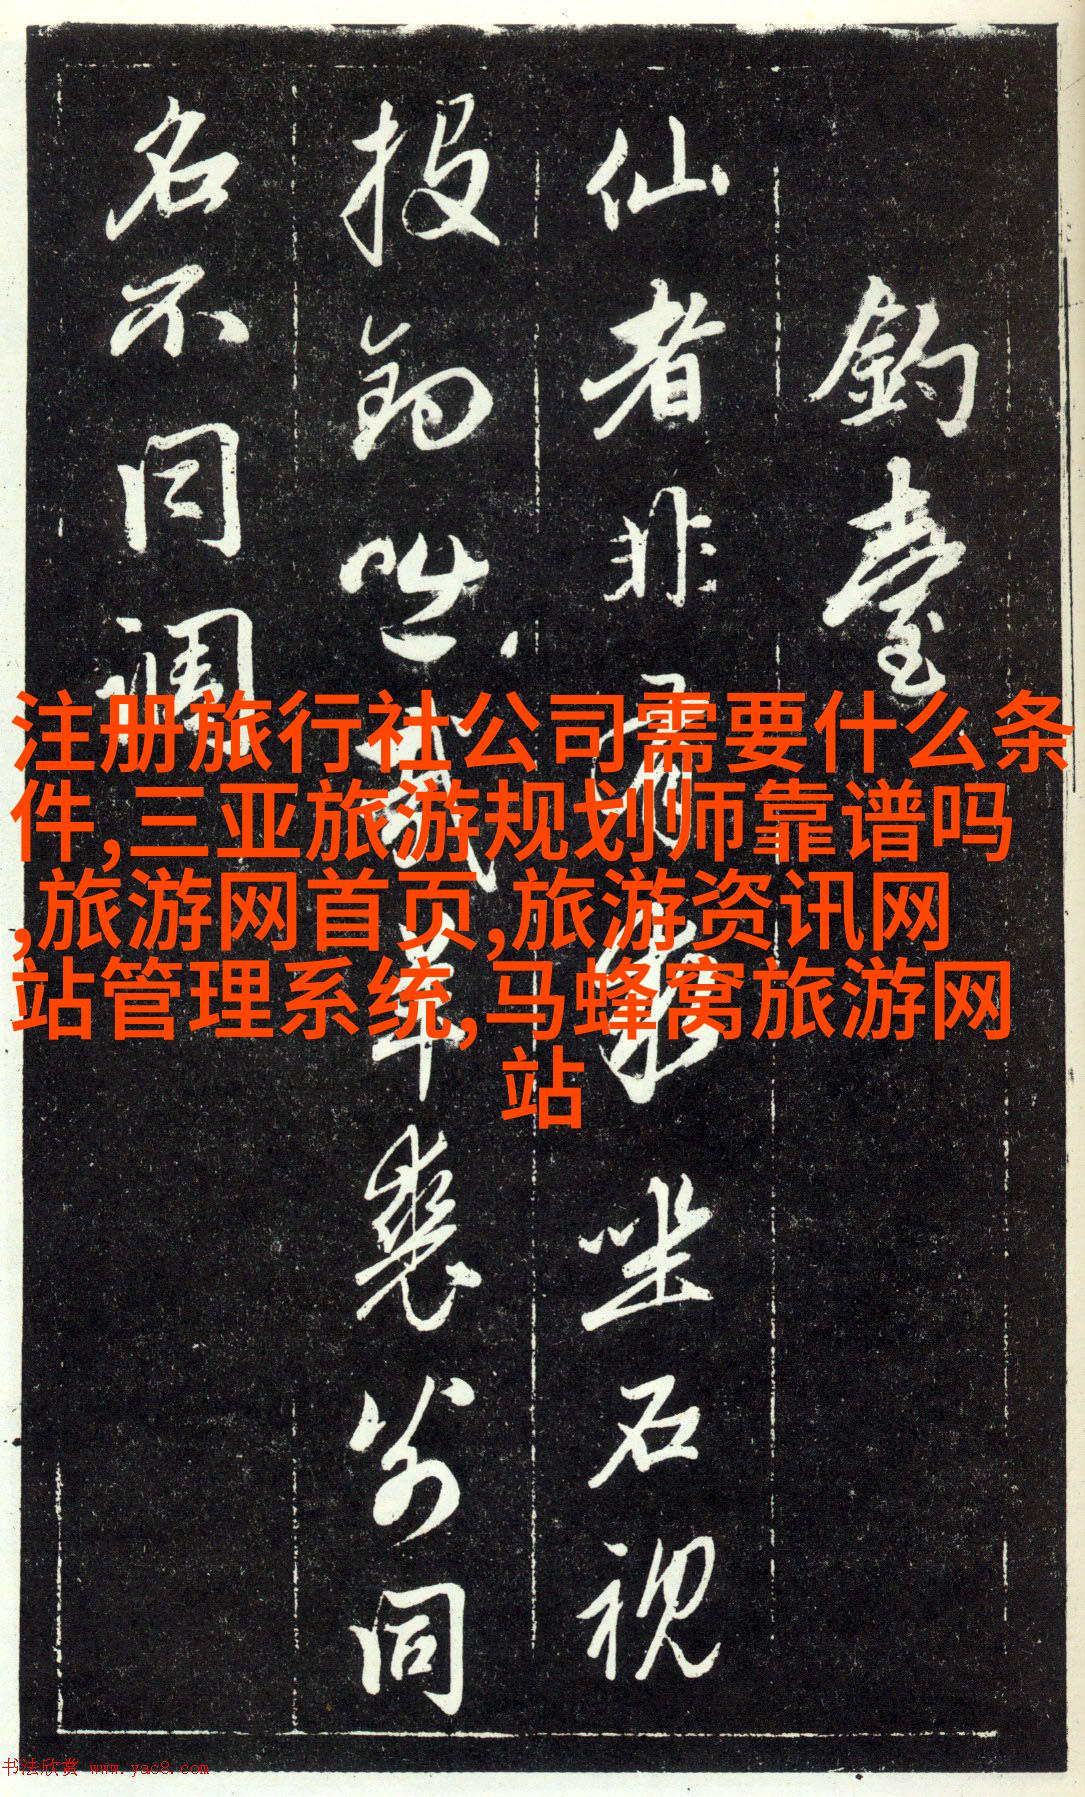 釣臺
仙者非有坐石視
投釣羊裘同
名不同調
注册旅行社公司需要什么条
件,三亚旅游规划师靠谱吗
,旅游网首页,旅游资讯网
站管理系统,马蜂窝旅游网
站
书法欣赏 www.yac8.com